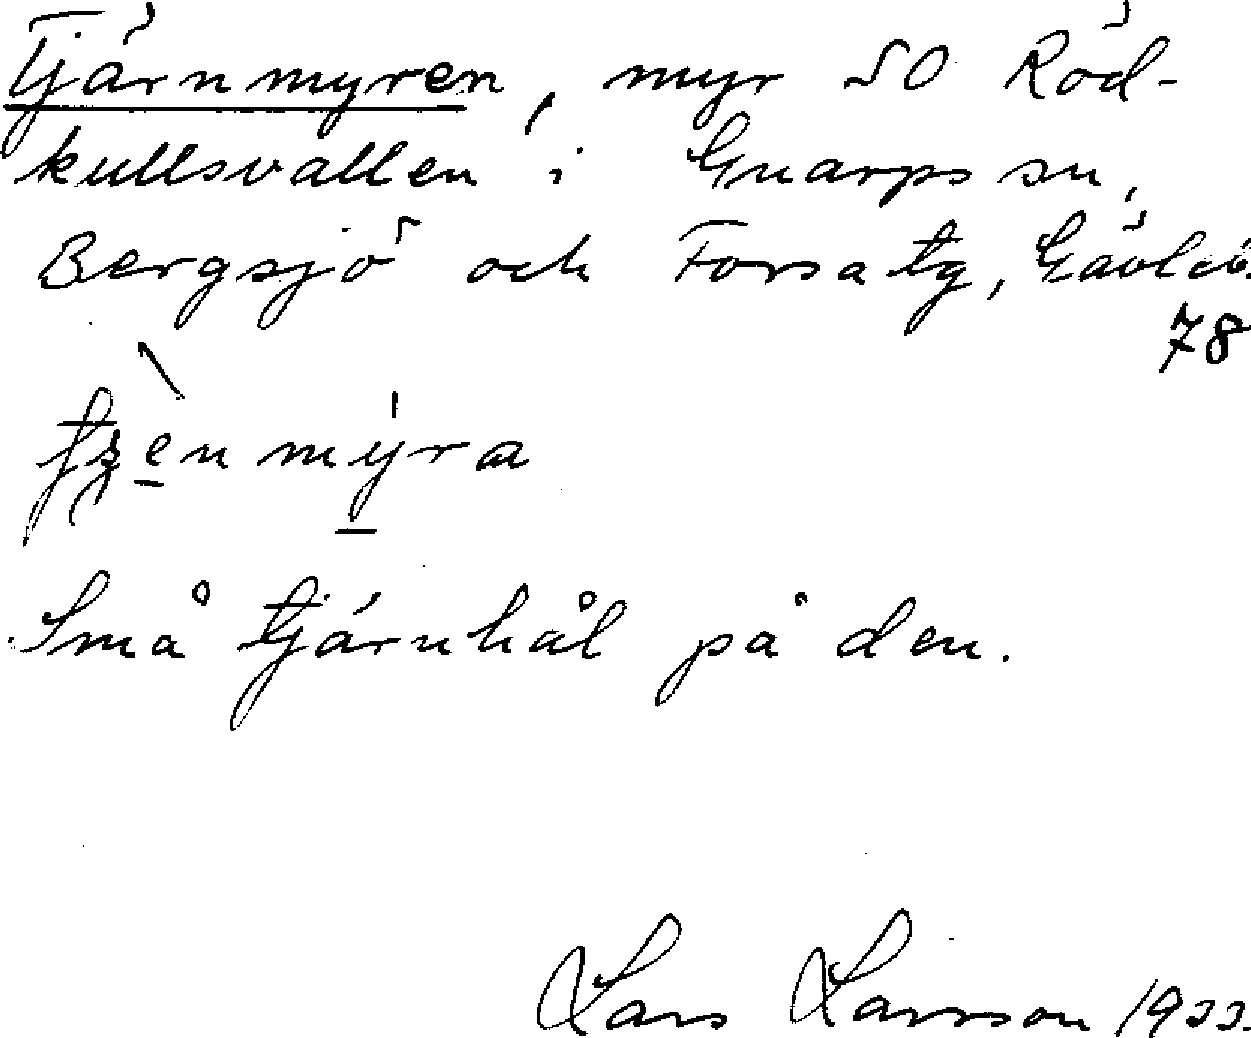 Tjärnmyren, myr SO Röd-
kullsvallen i Gnarps sn,
Bergsjö och Forsa tg, Gävleb.
78
myra
Små tjärnhål på den.
Lars Larsson 1933.